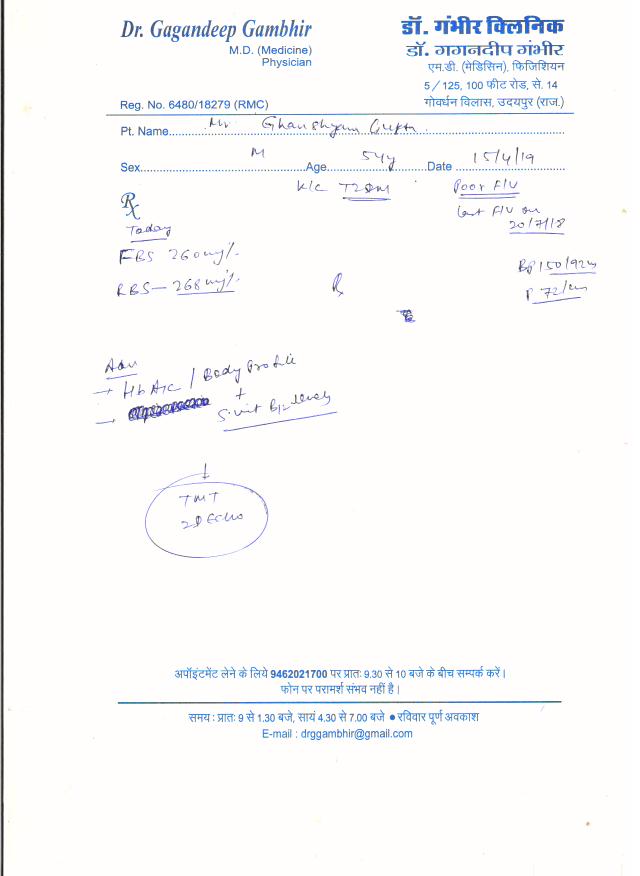 Dr. Gagandeep Gambhir
M.D. (Medicine)
Physician
Reg. No. 6480/18279 (RMC)
डॉ. गंभीर क्लिनिक
डॉ. गगनदीप गंभीर
एम.डी. (मेडिसिन), फिजिशियन
5 / 125, 100 फीट रोड, से. 14
गोवर्धन विलास, उदयपुर (राज.)
Pt. Name Mr. Ghanshyam Gupta
Sex M Age 54y Date 15/4/19
K/C T2DM
Poor F/U
last F/U on
20/7/18
Rx
Today
FBS 260 mg/.
RBS - 268 mg/.
BP 150/92
P 72/
Rx
Adv
→ HbA1C / Body Profile
+
→ S. vit B12 levels
↓
TMT
2D Echo
अपॉइंटमेंट लेने के लिये 9462021700 पर प्रातः 9.30 से 10 बजे के बीच सम्पर्क करें।
फोन पर परामर्श संभव नहीं है।
समय : प्रातः 9 से 1.30 बजे, सायं 4.30 से 7.00 बजे ● रविवार पूर्ण अवकाश
E-mail : drggambhir@gmail.com